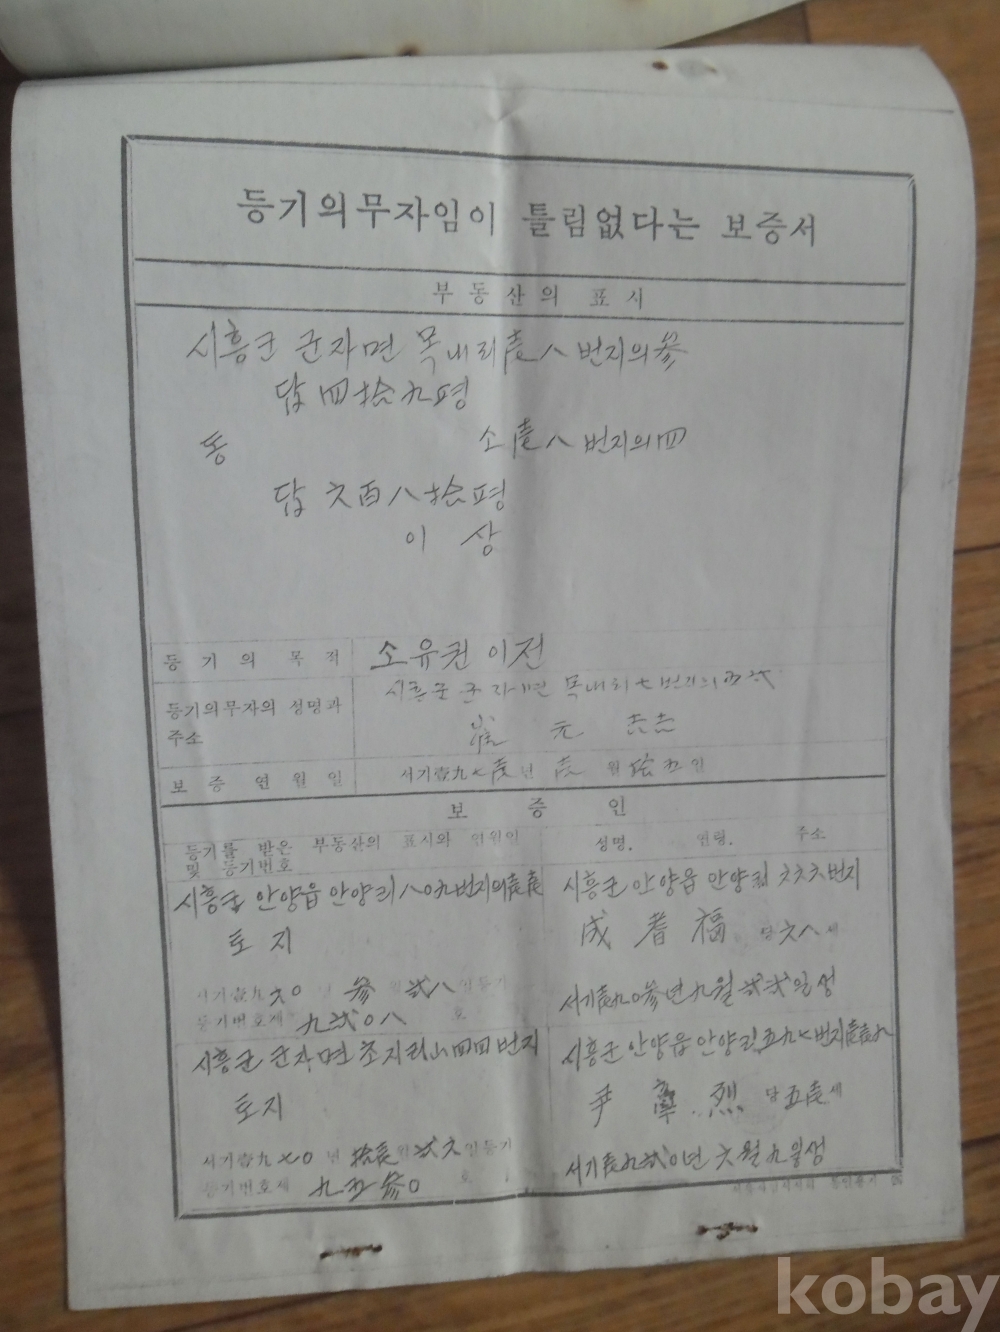 등기의무자임이 틀림없다는 보증서
부동산의 표시
시흥군 군자면 목내리 壱八번지의 参
답 四拾九평
동 소 壱八번지의 四
답 六百八拾평
이 상
등기의 목적 소유권 이전
등기의무자의 성명과 주소 시흥군 군자면 목내리 七번지의
元 喆
보증연월일 서기壹九七壱년 壱월 拾五일
보 증 인
등기를 받은 부동산의 표시와 연월일 및 등기번호
성명. 연령. 주소
시흥군 안양읍 안양리 八0九번지의 壱壱
토지
서기壹九六0년 参월 弐八일등기
등기번호제 九弐0八 호
시흥군 안양읍 안양리 六六六번지
成 者 福 당六八세
서기壱九0参년 九월 弐弐일생
시흥군 군자면 초지리 山四四번지
토지
서기壹九七0년 拾壱월 弐六일등기
등기번호제 九五参0 호
시흥군 안양읍 안양리 五九七번지
尹 烈 당五壱세
서기壱九弐0년 六월 九일생